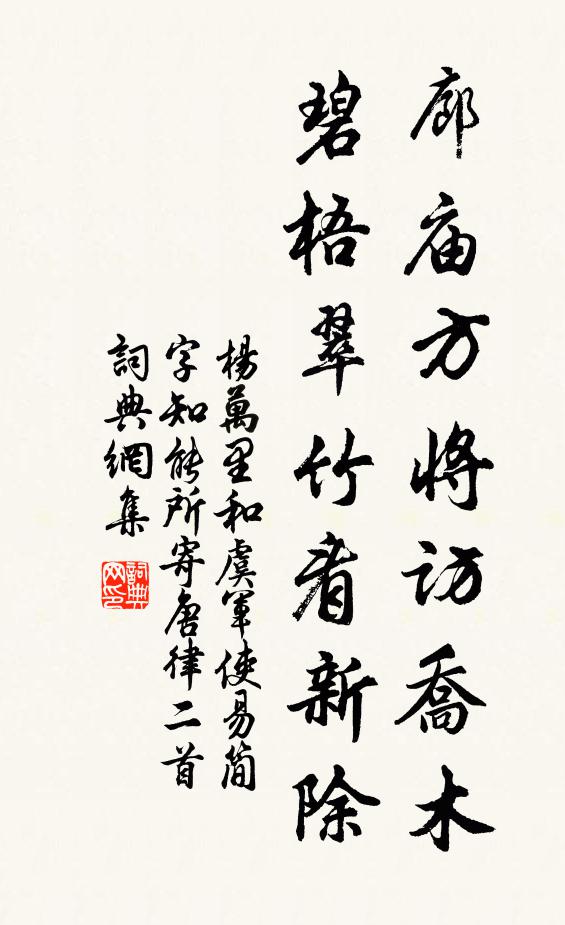 廊庙方将访乔木
碧梧翠竹看新除
楊萬里和虞軍使易簡
字知能所寄唐律二首
詞典網集
詞典
网印